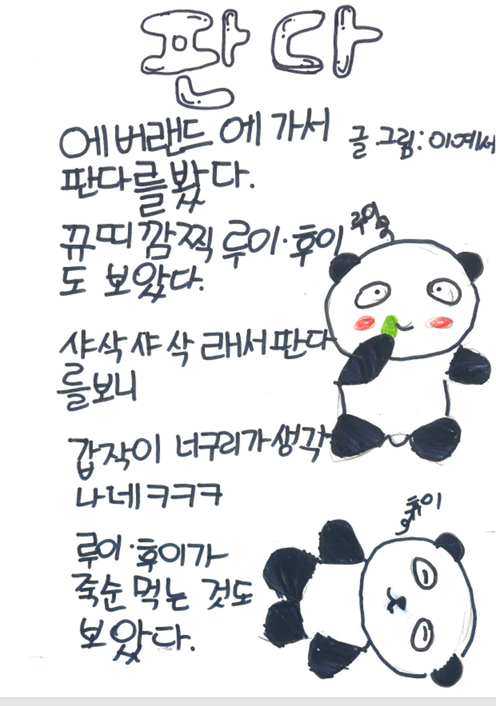 판다
에버랜드에 가서
글 그림: 이예서
판다를 봤다.
뀨띠 깜찍 루이·후이
도 보았다.
루이
샤삭 샤삭 래서판다
를 보니
갑작이 너구리가 생각
나네 ㅋㅋㅋ
후이
루이·후이가
죽순 먹는 것도
보았다.